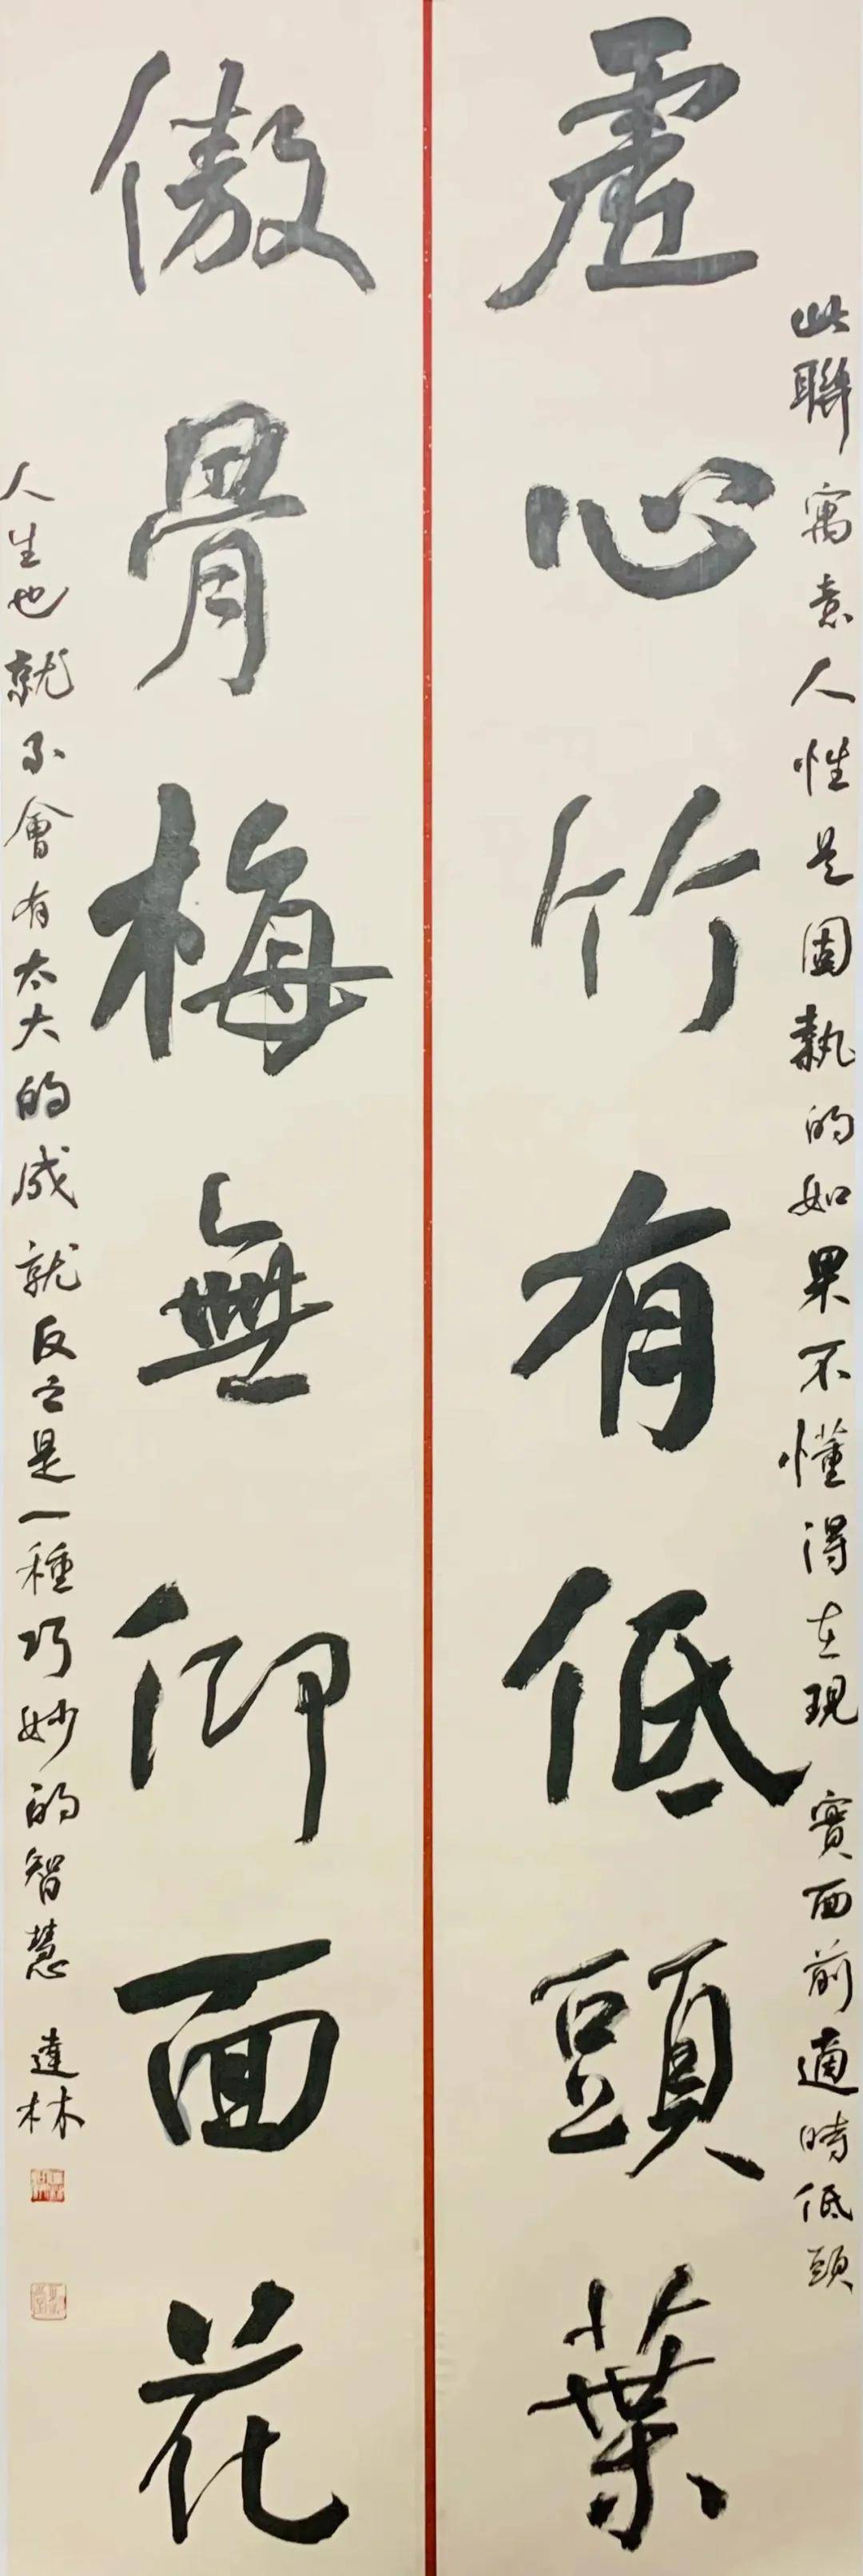 此聯寓意人性是固執的如果不懂得在現實面前適時低頭
虛心竹有低頭葉
傲骨梅無仰面花
人生也就不會有太大的成就反之是一種巧妙的智慧 達林